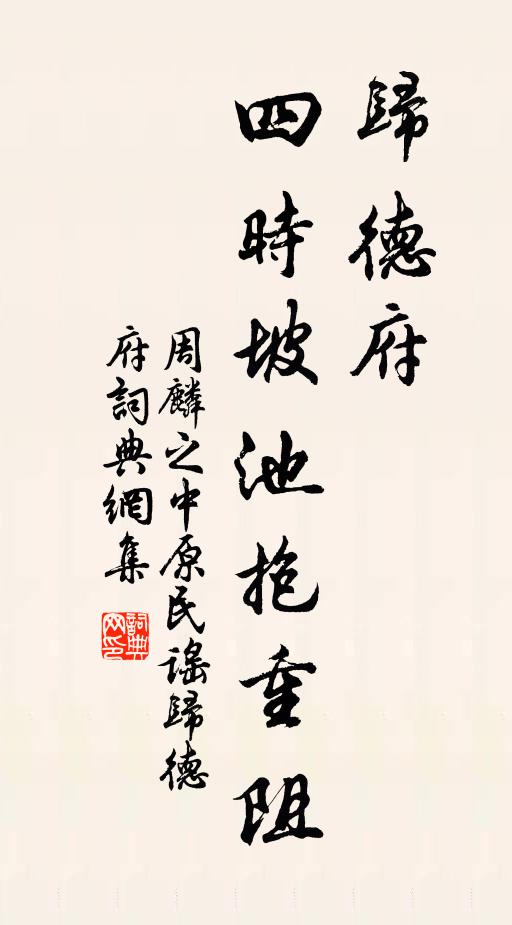 歸德府
四時坡池抱重阻
周麟之中原民謠歸德
府詞典網集
詞典
网印